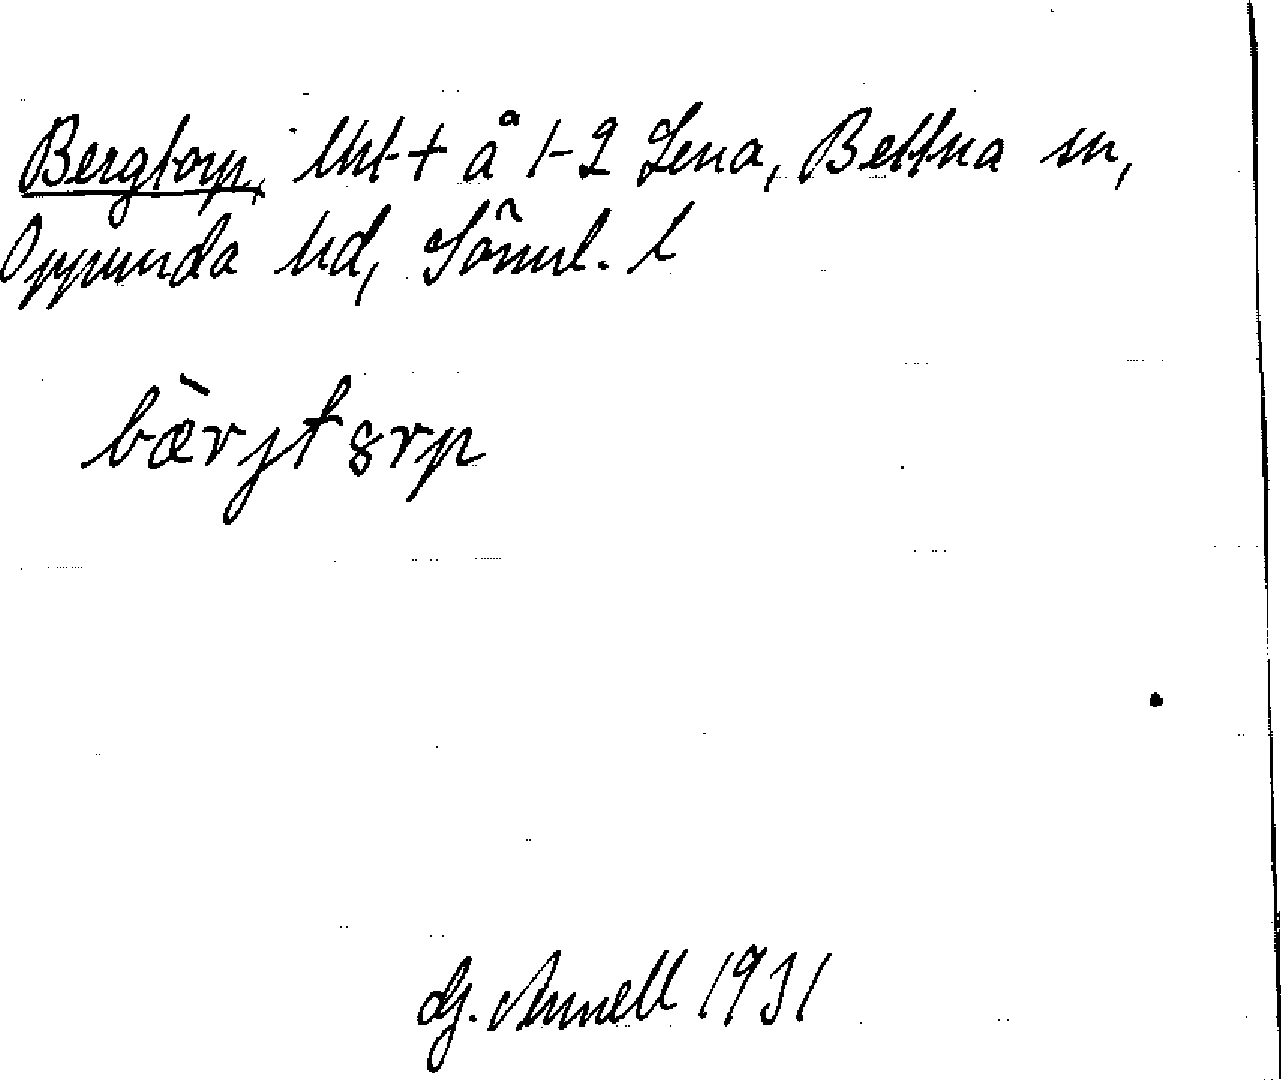 Bergtorp, lht + å 1-2 Lena, Bettna sn,
Oppunda hd, Söml. l
bæ̀rjtȣrp
G. Annell 1931